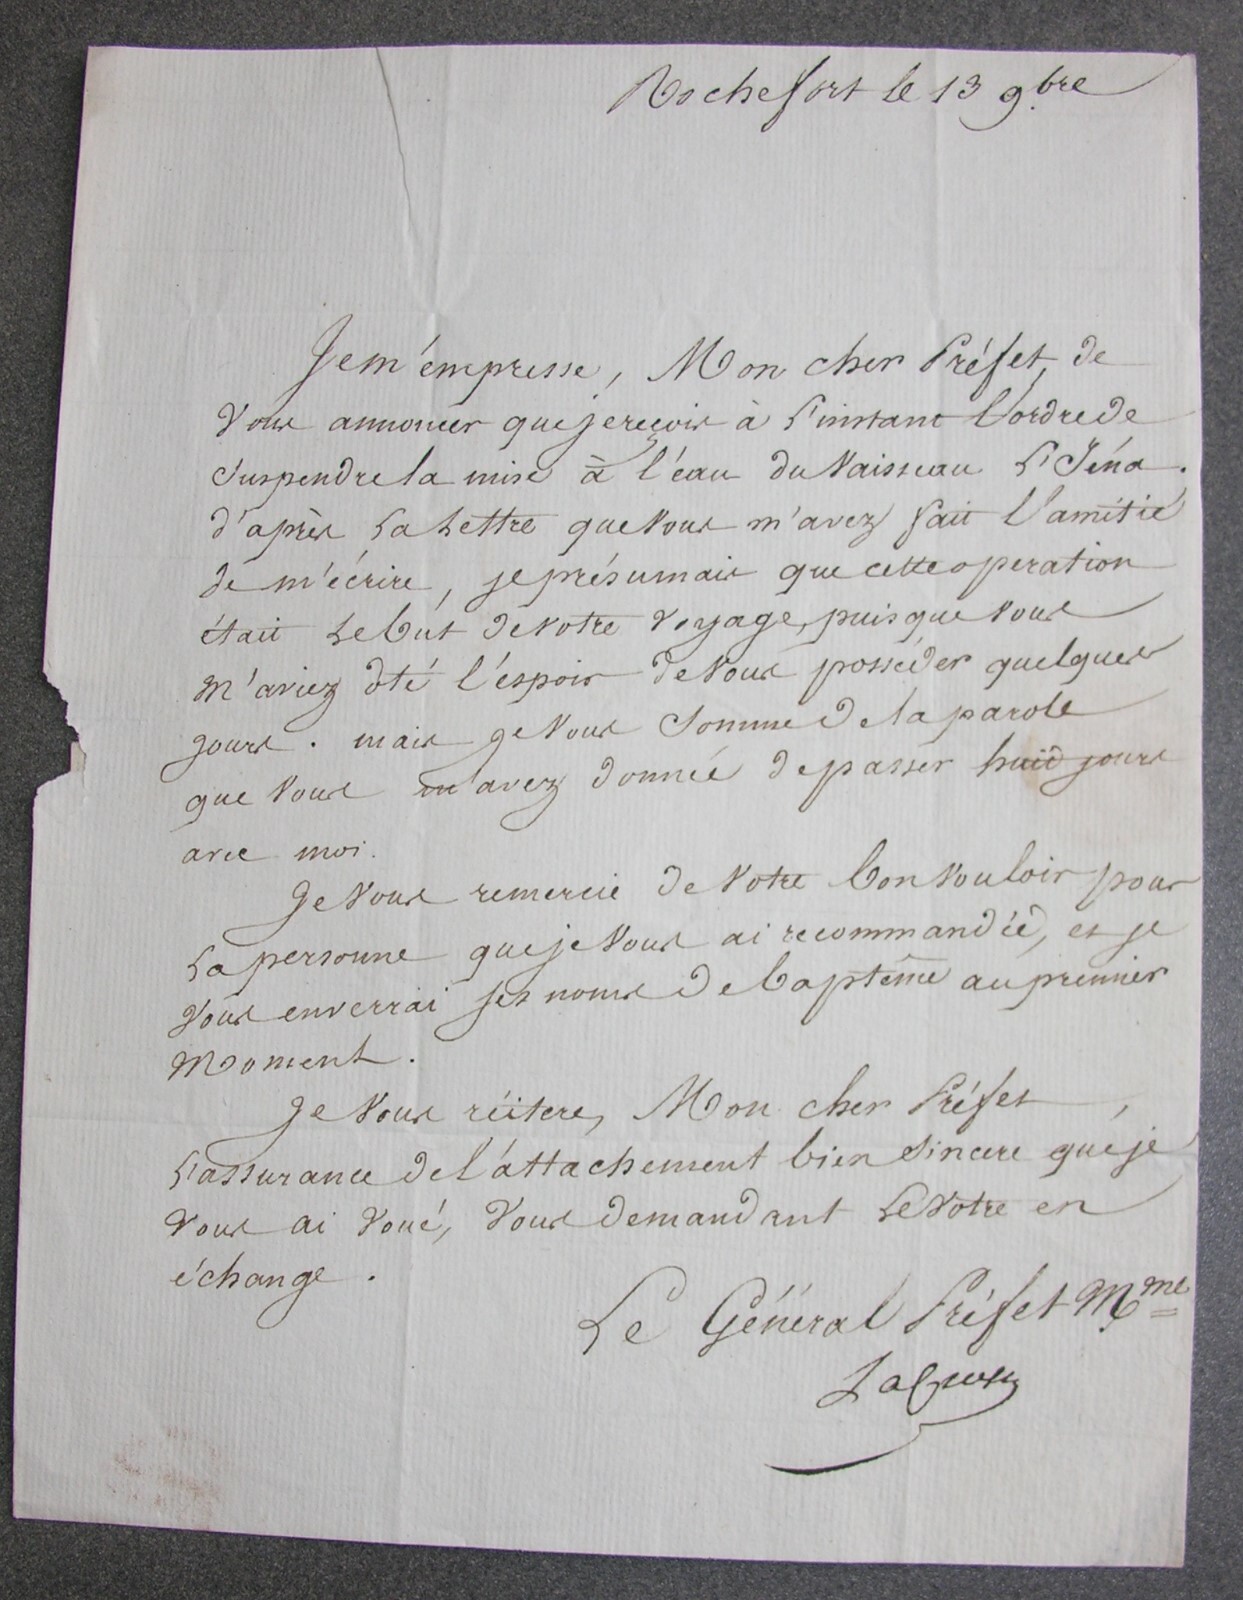 Rochefort le 13 9.bre
Je m'empresse, Mon cher Préfet, de
vous annoncer que je reçois à l'instant l'ordre de
suspendre la mise à l'éau du vaisseau l'Iéna.
d'après la lettre que vous m'avez fait l'amitié
de m'écrire, je présumais que cette operation
était le but de votre voyage, puisque vous
m'aviez ôté l'éspoir de vous posséder quelques
jours. mais je vous somme de la parole
que vous m'avez donnée de passer huit jours
avec moi.
Je vous remercie de votre bon vouloir pour
la personne que je vous ai recommandée, et je
vous enverrai ses noms de baptême au premier
moment.
Je vous réitere, Mon cher Préfet,
l'assurance de l'attachement bien sincere que je
vous ai voué, vous demandant le votre en
échange.
Le Général Préfet M.me